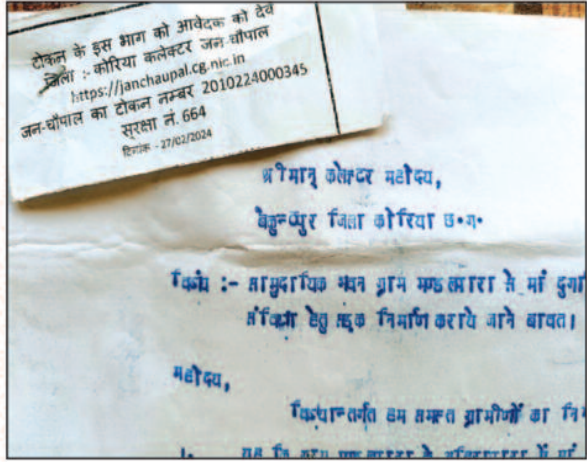 टोकन के इस भाग को आवेदक को देवें
जिला :- कोरिया कलेक्टर जन-चौपाल
https://janchaupal.cg.nic.in
जन-चौपाल का टोकन नम्बर 2010224000345
सुरक्षा नं. 664
दिनांक - 27/02/2024
श्रीमान् कलेक्टर महोदय,
बैकुन्ठपुर जिला कोरिया छ०ग०
विषय :- सामुदायिक भवन ग्राम से मां दुर्गा
हेतु सड़क निर्माण कराये जाने बाबत।
महोदय,
विषयान्तर्गत हम समस्त ग्रामीणों का
1. यह कि ग्राम में मां